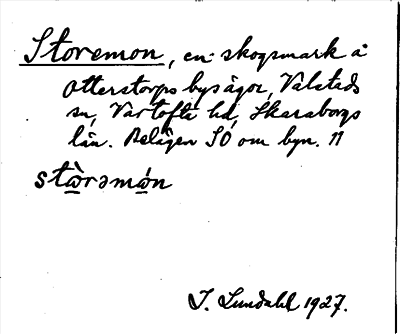 Storemon, en skogsmark å
Otterstorps bys ägor, Vålstads
sn, Vartofta hd, Skaraborgs
län. Belägen SO om byn. 11
stòrəmón
I. Lundahl 1927.